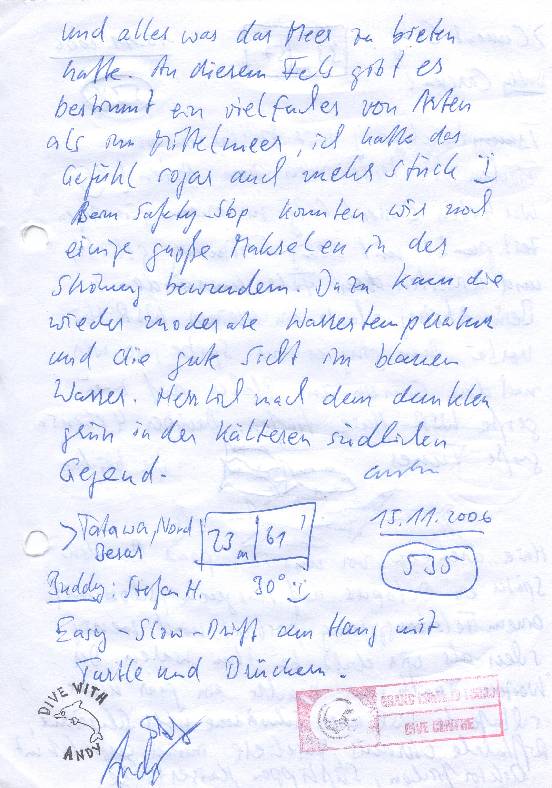 und alles was das Meer zu bieten
hatte. An diesem Fels gibt es
bestimmt ein vielfaches von Arten
als im Mittelmeer, ich hatte das
Gefühl sogar auch mehr Stück
Beim Safety-Stop konnten wir noch
einige große Makrelen in der
Strömung bewundern. Dazu kam die
wieder moderate Wassertemperatur
und die gute Sicht im blauen
Wasser. Herrlich nach dem dunklen
grün in der kälteren südlichen
Gegend.
>Tatawa, Nord
23 m | 61'
15.11.2006
535
Buddy: Stefan H. 30°
Easy-Slow-Drift am Hang mit
Turtle und Drückern.
DIVE WITH
ANDY
Andy
DIVE CENTRE